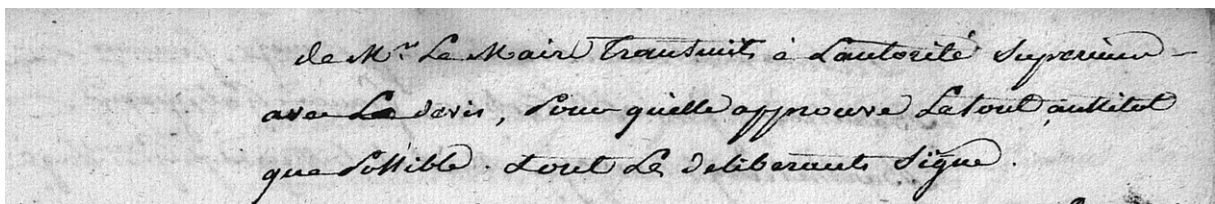 de Mr. Le Maire Transmit à L'autorité Superieur
avec Le devis, Pour qu'elle approuve Le tout aussitot
que Possible. dont Les deliberants Signé.